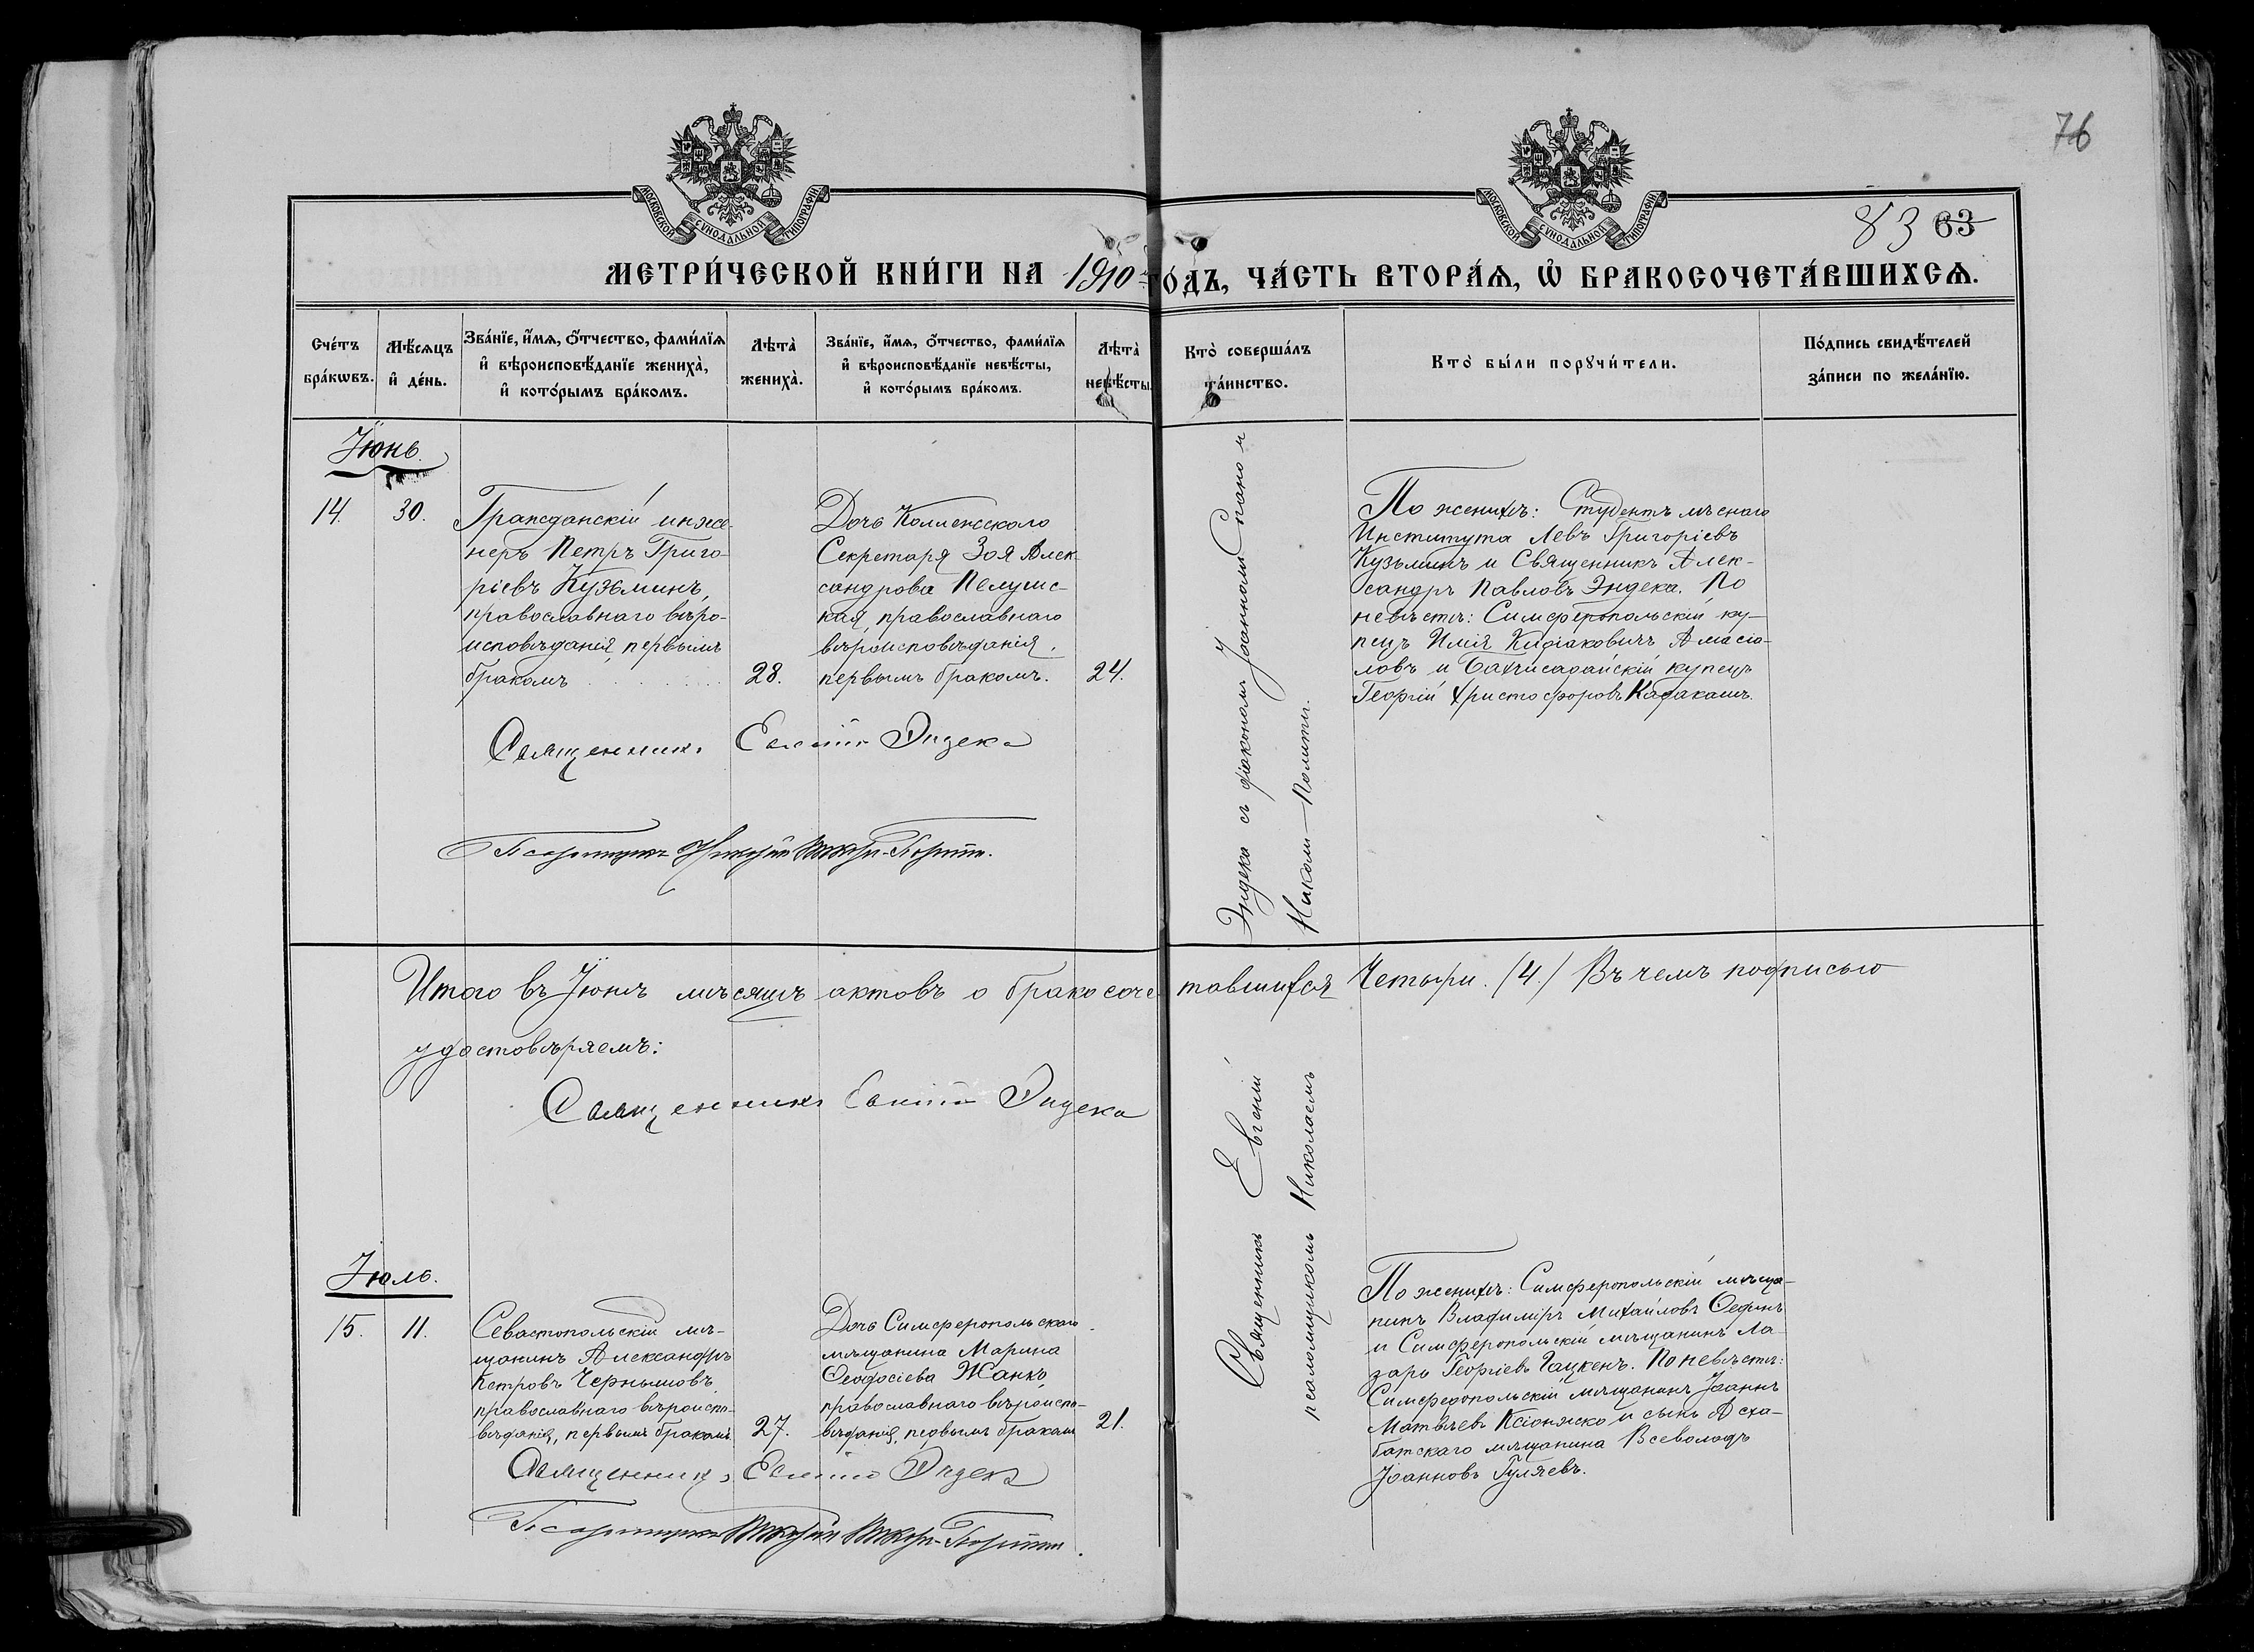 76
83 63
МОСКОВСКОЙ СѴНОДАЛЬНОЙ ТИПОГРАФІИ
МОСКОВСКОЙ СѴНОДАЛЬНОЙ ТИПОГРАФІИ
МЕТРИ́ЧЕСКОЙ КНИ́ГИ НА 1910 ГО́ДЪ, ЧА́СТЬ ВТОРА́Ѧ, Ѡ҆ БРАКОСОЧЕТА́ВШИХСѦ.
Сче́тъ бра́кѡвъ.
Мѣ́сяцъ и҆ де́нь.
Зва́нїе, и҆́мѧ, ѻ҆́тчество, фами́лїѧ и҆ вѣроисповѣ́данїе жениха̀, и҆ кото́рымъ бра́комъ.
Лѣта̀ жениха̀.
Зва́нїе, и҆́мѧ, ѻ҆́тчество, фами́лїѧ и҆ вѣроисповѣ́данїе невѣ́сты, и҆ кото́рымъ бра́комъ.
Лѣта̀ невѣ́сты.
Кто̀ соверша́лъ та́инство.
Кто̀ бы́ли порꙋчи́тели.
По́дпись свидѣ́телей за́писи по жела́нїю.
Іюнь.
14. 30.
Гражданскій инже-
неръ Петръ Григо-
ріевъ Кузьминъ,
православнаго вѣро-
исповѣданія, первымъ
бракомъ
28.
Дочь Коллежскаго
Секретаря Зоя Алек-
сандрова Пелушс-
кая, православнаго
вѣроисповѣданія,
первымъ бракомъ.
24.
Священникъ Евгеній Эндека
съ діакономъ Іоанномъ Спано и
псаломщикомъ Николаемъ
Николи-Политы.
По женихѣ: Студентъ лѣснаго
Института Левъ Григоріевъ
Кузьминъ и Священникъ Алек-
сандръ Павловъ Эндека. По
невѣстѣ: Симферопольскій ку-
пецъ Илія Киріаковичъ
и Бахчисарайскій купецъ
Георгій Христофоровъ Каракашъ.
Священникъ Евгеній Эндека
Псаломщикъ Николай Николи-Политы.
Итого въ Іюнѣ мѣсяцѣ актовъ о бракосочетавшихся Четыри. (4.) Въ чемъ подписью
удостовѣряемъ:
Священникъ Евгеній Эндека
Іюль.
15. 11.
Севастопольскій мѣ-
щанинъ Александръ
Петровъ Чернышовъ,
православнаго вѣроиспо-
вѣданія, первымъ бракомъ.
27.
Дочь Симферопольскаго
мѣщанина Марина
Ѳеодосіева Жанко,
православнаго вѣроиспо-
вѣданія, первымъ бракомъ
21.
По женихѣ: Симферопольскій мѣща-
нинъ Владиміръ Михайловъ
и Симферопольскій мѣщанинъ Ла-
зарь Георгіевъ Гацкенъ. По невѣстѣ:
Симферопольскій мѣщанинъ Іоаннъ
Матвѣевъ Ксіонжко и сынъ Асха-
батскаго мѣщанина Всеволодъ
Іоанновъ Гуляевъ.
Священникъ Евгеній Эндека
Псаломщикъ Николай Николи-Политы.